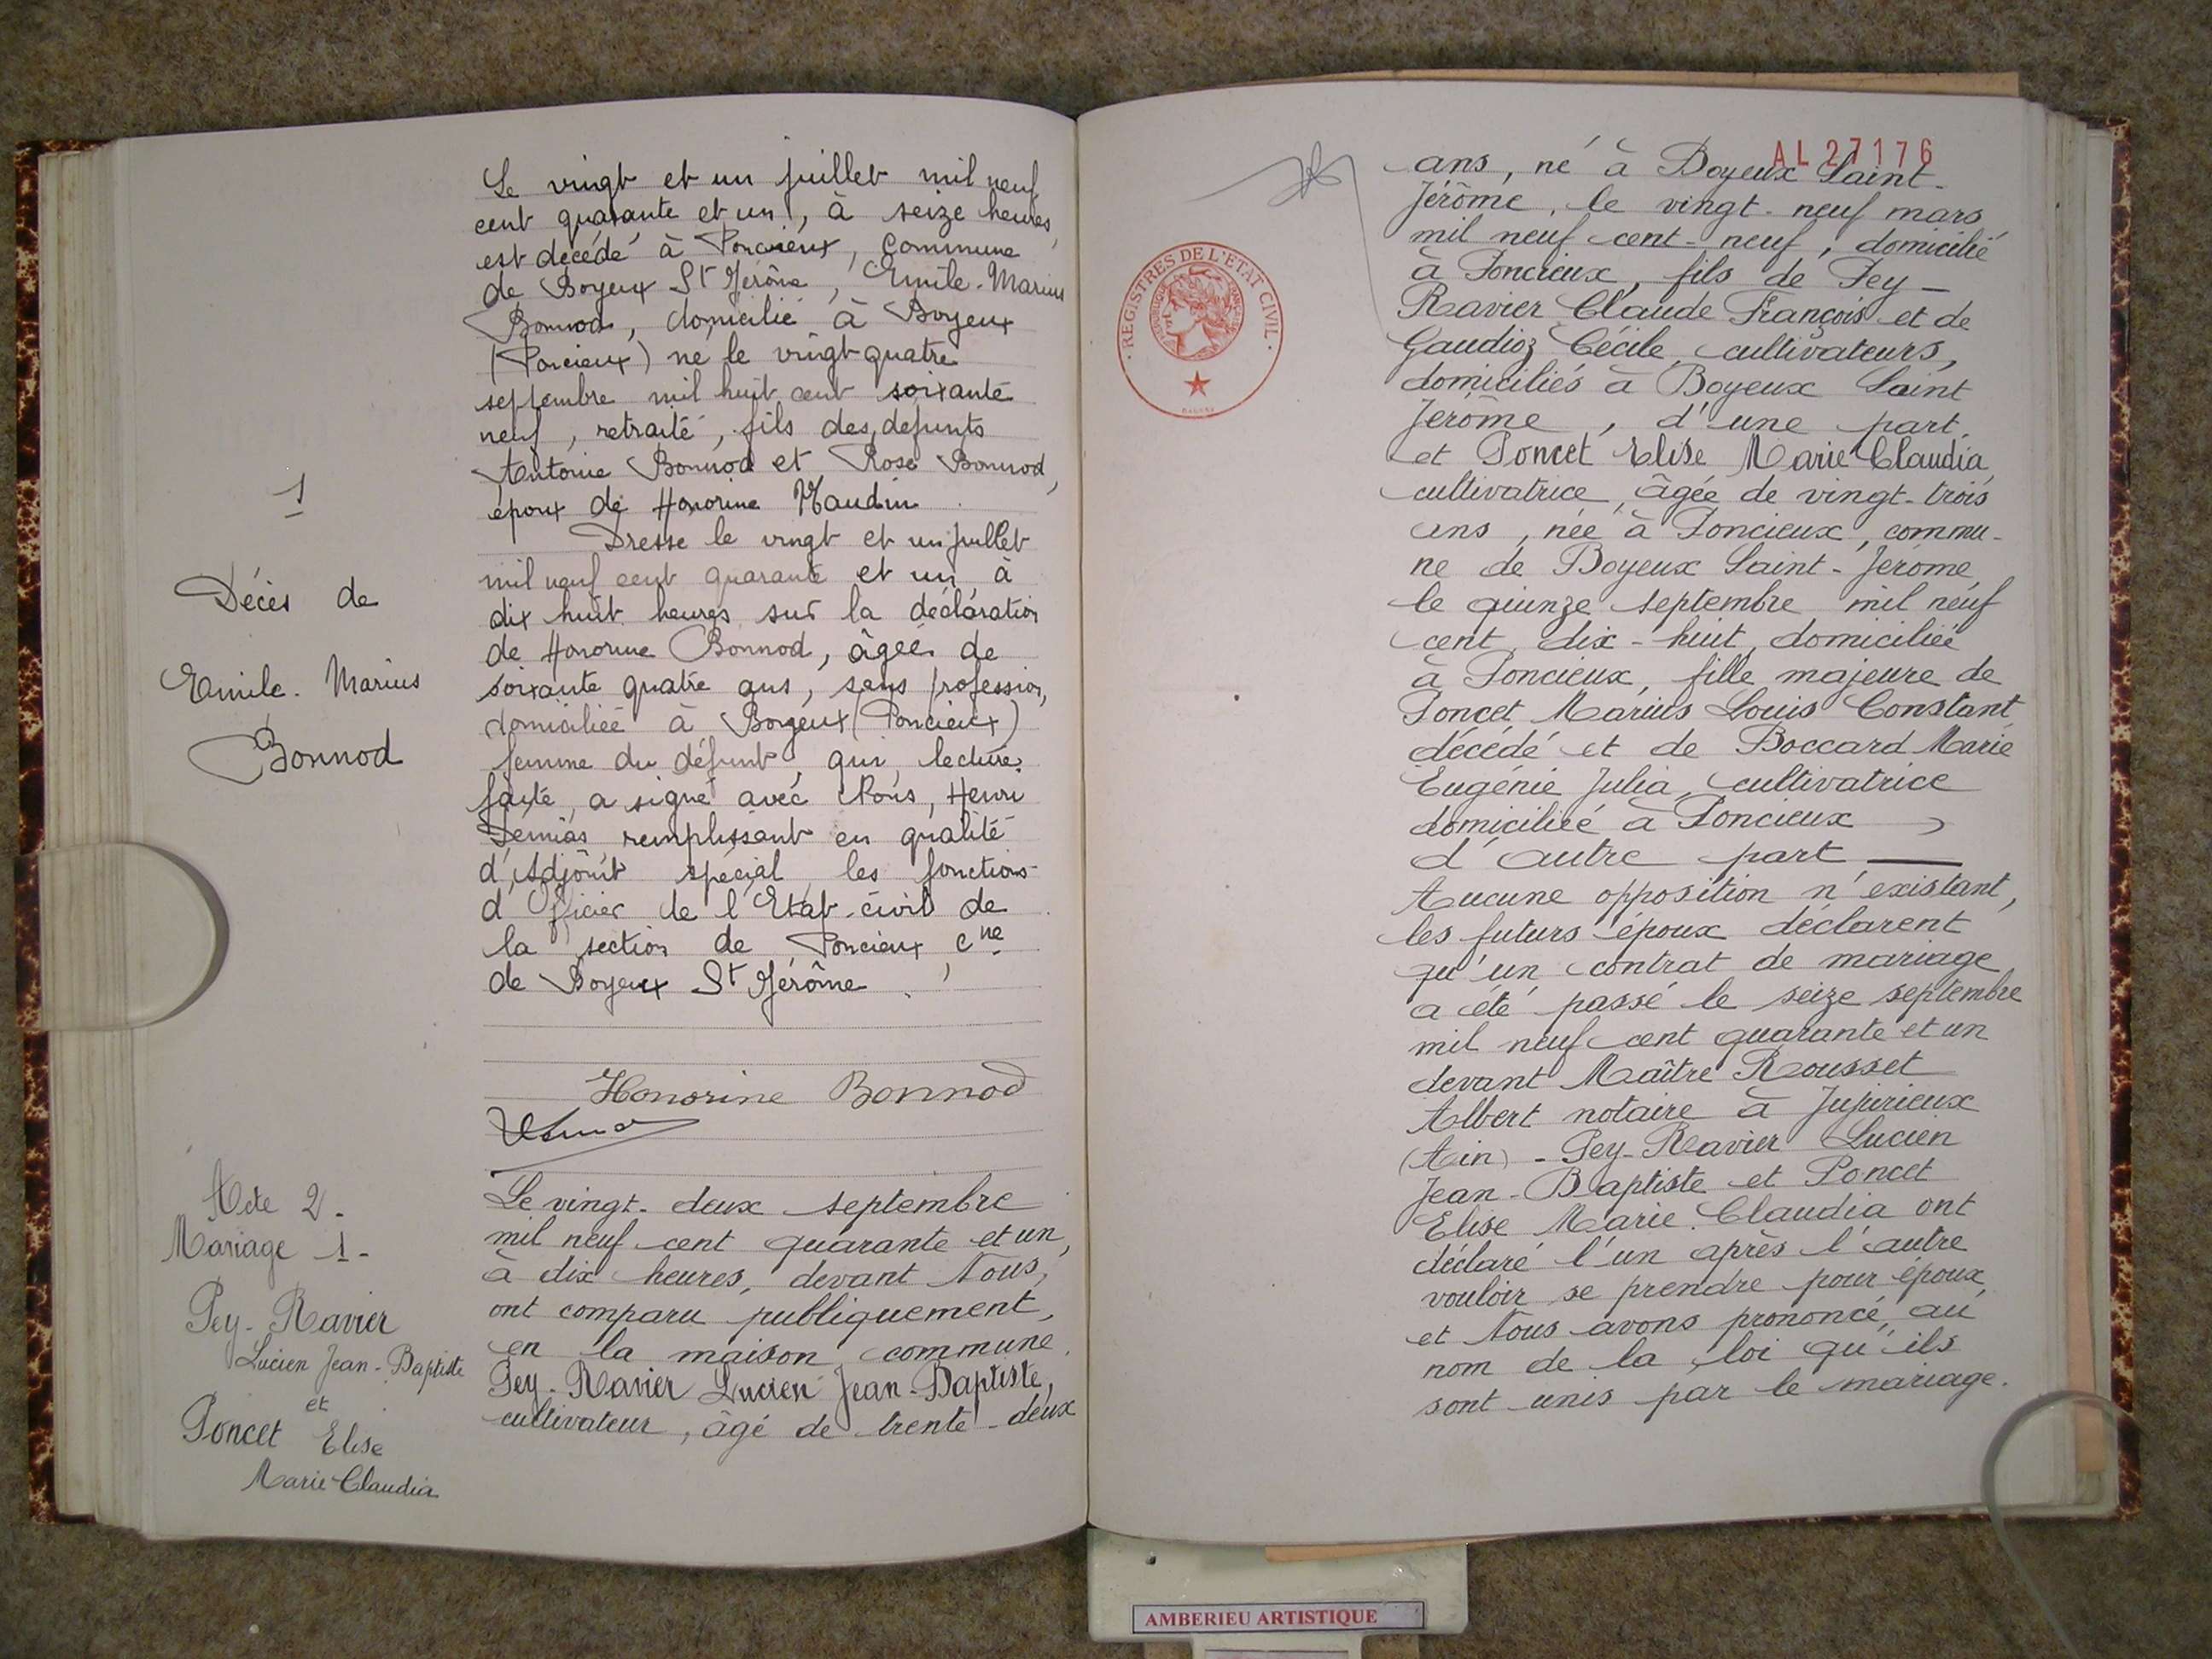 1
Décès de
Emile. Marius
Bonnod
Le vingt et un juillet mil neuf
cent quarante et un, à seize heures,
est décédé à Poncieux, commune
de Boyeux St Jérôme, Emile-Marius
Bonnod, domicilié à Boyeux
(Poncieux) né le vingt quatre
septembre mil huit cent soixante
neuf, retraité, fils des défunts
Antoine Bonnod et Rose Bonnod,
époux de Honorine Naudin.
Dressé le vingt et un juillet
mil neuf cent quarante et un à
dix huit heures sur la déclaration
de Honorine Bonnod, âgée de
soixante quatre ans, sans profession,
domiciliée à Boyeux (Poncieux)
femme du défunt, qui, lecture
faite, a signé avec Nous, Henri
remplissant en qualité
d'Adjoint spécial les fonctions
d'Officier de l'Etat-civil de
la section de Poncieux cne
de Boyeux St Jérôme.
Honorine Bonnod
Acte 2-
Mariage 1-
Pey-Ravier
Lucien Jean-Baptiste
et
Poncet Elise
Marie-Claudia
Le vingt-deux septembre
mil neuf cent quarante et un,
à dix heures, devant Nous,
ont comparu publiquement,
en la maison commune.
Pey-Ravier Lucien Jean-Baptiste,
cultivateur, âgé de trente-deux
AL 27176
REGISTRES DE L'ETAT CIVIL
ans, né à Boyeux Saint-
Jérôme, le vingt-neuf mars
mil neuf cent-neuf, domicilié
à Poncieux, fils de Pey-
Ravier Claude François et de
Gaudioz Cécile, cultivateurs,
domiciliés à Boyeux Saint
Jérôme, d'une part,
et Poncet Elise Marie Claudia,
cultivatrice, âgée de vingt-trois
ans, née à Poncieux, commu-
ne de Boyeux Saint-Jérôme,
le quinze septembre mil neuf
cent dix-huit, domiciliée
à Poncieux, fille majeure de
Poncet Marius Louis Constant,
décédé et de Boccard Marie
Eugénie Julia, cultivatrice
domiciliée à Poncieux,
d'autre part —
Aucune opposition n'existant,
les futurs époux déclarent
qu'un contrat de mariage
a été passé le seize septembre
mil neuf cent quarante et un
devant Maître Rousset
Albert notaire à Jujurieux
(Ain) - Pey-Ravier Lucien
Jean-Baptiste et Poncet
Elise Marie Claudia ont
déclaré l'un après l'autre
vouloir se prendre pour époux,
et Nous avons prononcé, au
nom de la loi qu'ils
sont unis par le mariage.
AMBERIEU ARTISTIQUE